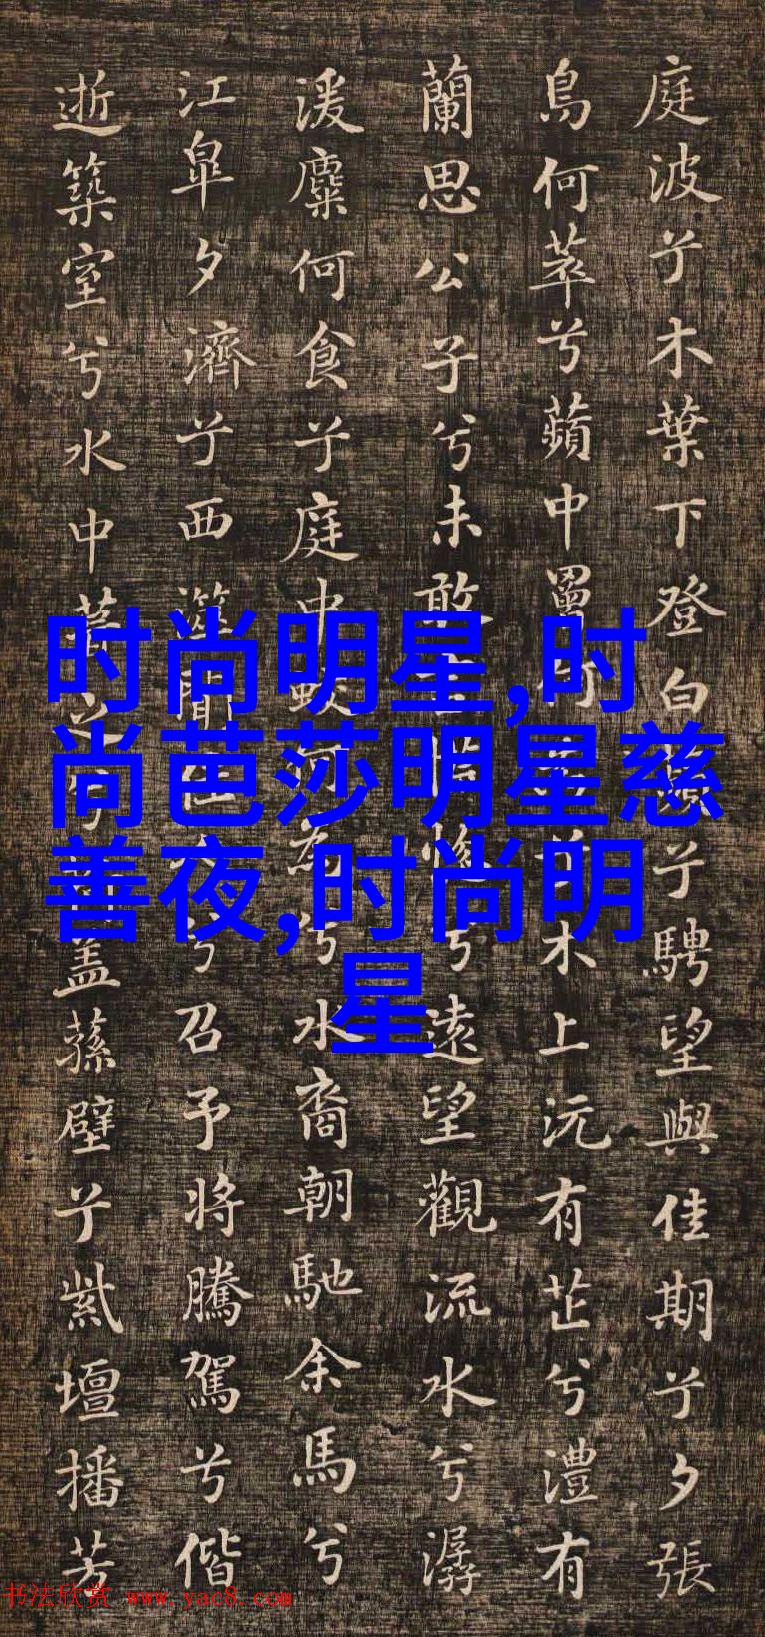 庭波兮木葉下登白薠兮騁望與佳期兮夕張
鳥何萃兮蘋中罾何為兮木上沅有芷兮澧有
蘭思公子兮未敢言慌惚兮遠望觀流水兮潺
湲麋何食兮庭中蛟何為兮水裔朝馳余馬兮
江皋夕濟兮西澨聞佳人兮召予將騰駕兮偕
逝築室兮水中葺之兮荷蓋蓀壁兮紫壇播芳
时尚明星,时
尚芭莎明星慈
善夜,时尚明
星
书法欣赏 www.yac8.com